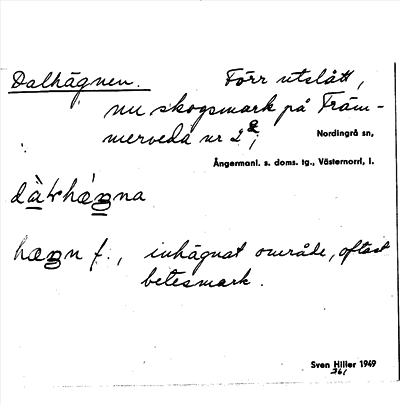 Dalhägnen. Förr utslått,
nu skogsmark på Främ-
merveda nr 2²;
Nordingrå sn,
Ångermanl. s. doms. tg., Västernorrl, l.
hægn f., inhägnat område, oftast
betesmark.
Sven Hiller 1949
261